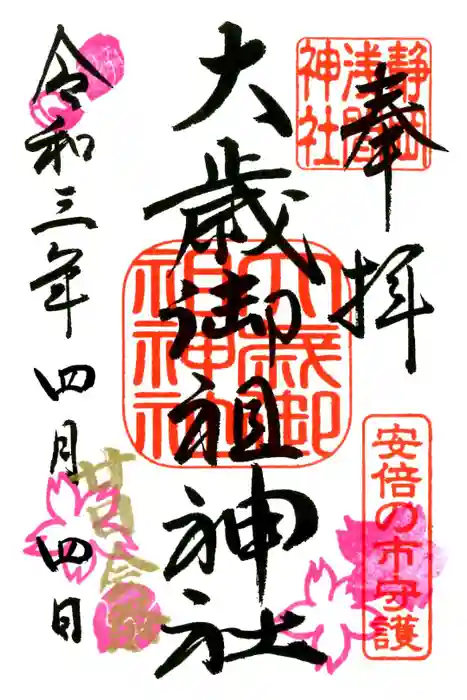 奉拝
静岡
浅間
神社
安倍の市守護
大歳御祖神社
大歳御
祖神社
令和三年四月四日
廿日会